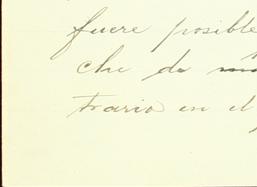 fuere posible
che de
trario en el